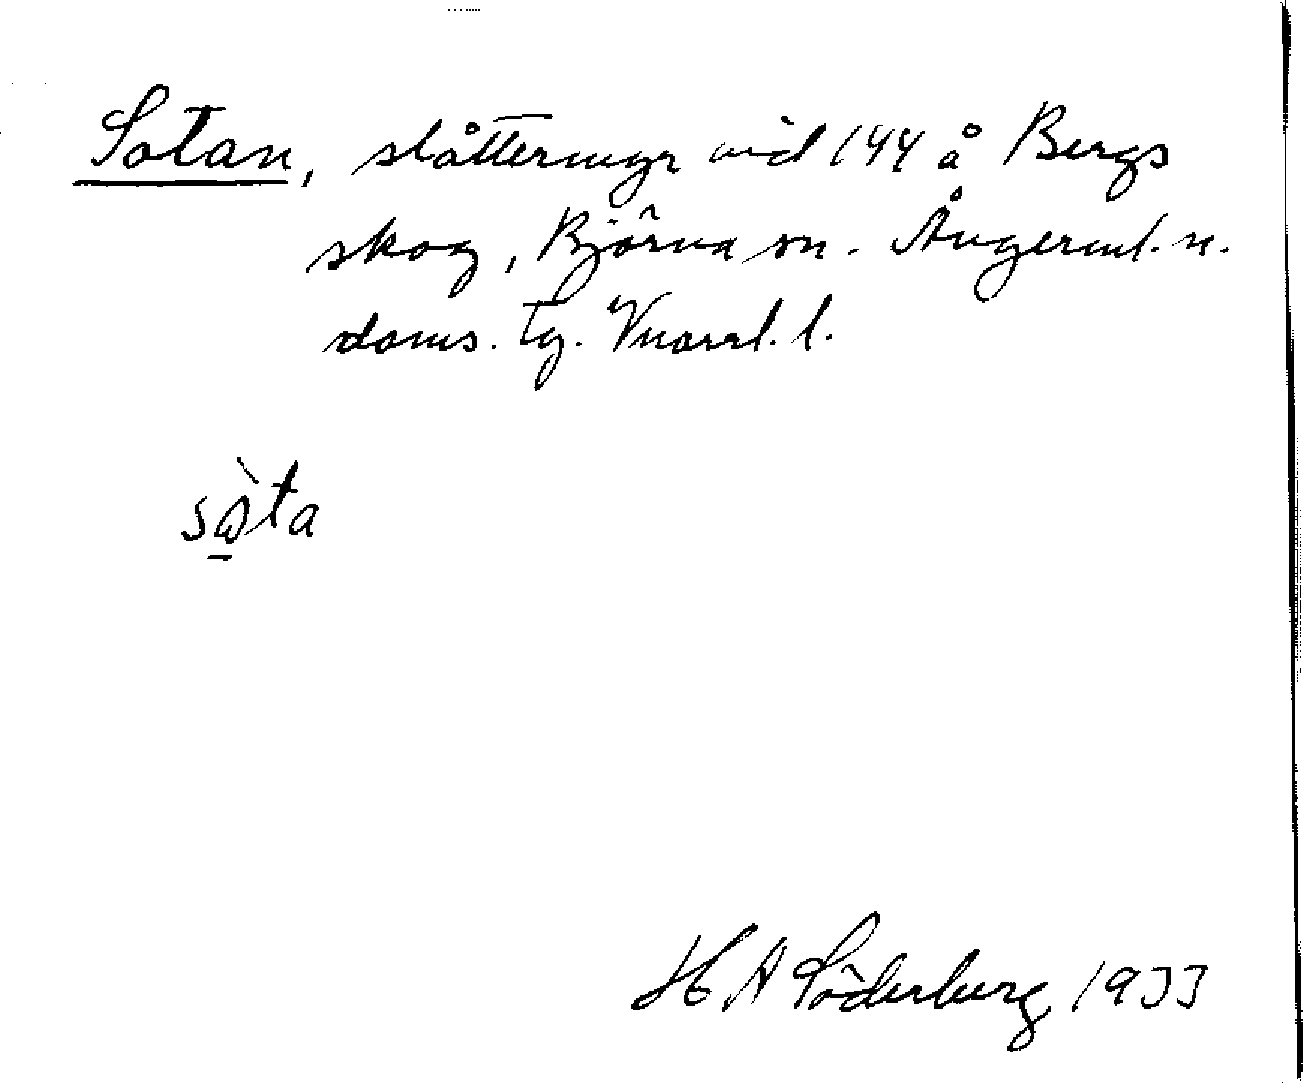 Sotan, slåttermyr vid 144 å Bergs
skog, Björna sn. Ångerml. n.
doms. tg. Vnorrl. l.
sờta
H A Söderberg 1933